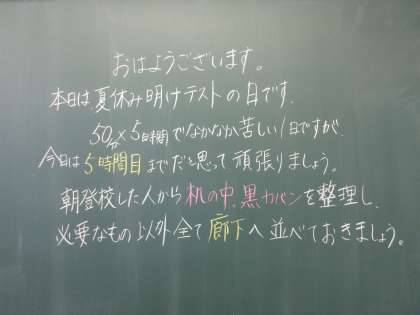 おはようございます。
本日は、夏休み明けテストの日です。
50分×5時間でなかなか苦しい1日ですが、
今日は5時間目までだと思って頑張りましょう。
朝登校した人から机の中、黒カバンを整理し、
必要なもの以外全て廊下へ並べておきましょう。